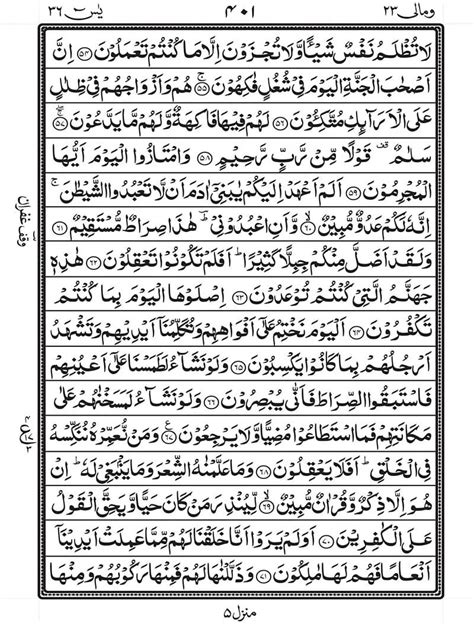 ومالی ٢٣ ٤٠١ یٰسٓ ٣٦
لَا تُظْلَمُ نَفْسٌ شَيْـًٔا وَّلَا تُجْزَوْنَ اِلَّا مَا كُنْتُمْ تَعْمَلُوْنَ ﴿٥٤﴾ اِنَّ
اَصْحٰبَ الْجَنَّةِ الْيَوْمَ فِيْ شُغُلٍ فٰكِهُوْنَ ﴿٥٥﴾ هُمْ وَاَزْوَاجُهُمْ فِيْ ظِلٰلٍ
عَلَى الْاَرَآئِكِ مُتَّكِـُٔوْنَ ﴿٥٦﴾ لَهُمْ فِيْهَا فَاكِهَةٌ وَّلَهُمْ مَّا يَدَّعُوْنَ ﴿٥٧﴾
سَلٰمٌ قف قَوْلًا مِّنْ رَّبٍّ رَّحِيْمٍ ﴿٥٨﴾ وَامْتَازُوا الْيَوْمَ اَيُّهَا
الْمُجْرِمُوْنَ ﴿٥٩﴾ اَلَمْ اَعْهَدْ اِلَيْكُمْ يٰبَنِيْٓ اٰدَمَ اَنْ لَّا تَعْبُدُوا الشَّيْطٰنَ ۚ
اِنَّهٗ لَكُمْ عَدُوٌّ مُّبِيْنٌ ﴿٦٠﴾ وَّاَنِ اعْبُدُوْنِيْ ؕ هٰذَا صِرَاطٌ مُّسْتَقِيْمٌ ﴿٦١﴾
وَلَقَدْ اَضَلَّ مِنْكُمْ جِبِلًّا كَثِيْرًا ؕ اَفَلَمْ تَكُوْنُوْا تَعْقِلُوْنَ ﴿٦٢﴾ هٰذِهٖ
جَهَنَّمُ الَّتِيْ كُنْتُمْ تُوْعَدُوْنَ ﴿٦٣﴾ اِصْلَوْهَا الْيَوْمَ بِمَا كُنْتُمْ
تَكْفُرُوْنَ ﴿٦٤﴾ اَلْيَوْمَ نَخْتِمُ عَلٰٓى اَفْوَاهِهِمْ وَتُكَلِّمُنَآ اَيْدِيْهِمْ وَتَشْهَدُ
اَرْجُلُهُمْ بِمَا كَانُوْا يَكْسِبُوْنَ ﴿٦٥﴾ وَلَوْ نَشَآءُ لَطَمَسْنَا عَلٰٓى اَعْيُنِهِمْ
فَاسْتَبَقُوا الصِّرَاطَ فَاَنّٰى يُبْصِرُوْنَ ﴿٦٦﴾ وَلَوْ نَشَآءُ لَمَسَخْنٰهُمْ عَلٰى
مَكَانَتِهِمْ فَمَا اسْتَطَاعُوْا مُضِيًّا وَّلَا يَرْجِعُوْنَ ﴿٦٧﴾ وَمَنْ نُّعَمِّرْهُ نُنَكِّسْهُ
فِي الْخَلْقِ ؕ اَفَلَا يَعْقِلُوْنَ ﴿٦٨﴾ وَمَا عَلَّمْنٰهُ الشِّعْرَ وَمَا يَنْۢبَغِيْ لَهٗ ؕ اِنْ
هُوَ اِلَّا ذِكْرٌ وَّقُرْاٰنٌ مُّبِيْنٌ ﴿٦٩﴾ لِّيُنْذِرَ مَنْ كَانَ حَيًّا وَّيَحِقَّ الْقَوْلُ
عَلَى الْكٰفِرِيْنَ ﴿٧٠﴾ اَوَلَمْ يَرَوْا اَنَّا خَلَقْنَا لَهُمْ مِّمَّا عَمِلَتْ اَيْدِيْنَآ
اَنْعَامًا فَهُمْ لَهَا مٰلِكُوْنَ ﴿٧١﴾ وَذَلَّلْنٰهَا لَهُمْ فَمِنْهَا رَكُوْبُهُمْ وَمِنْهَا
وقف غفران
منزل ٥